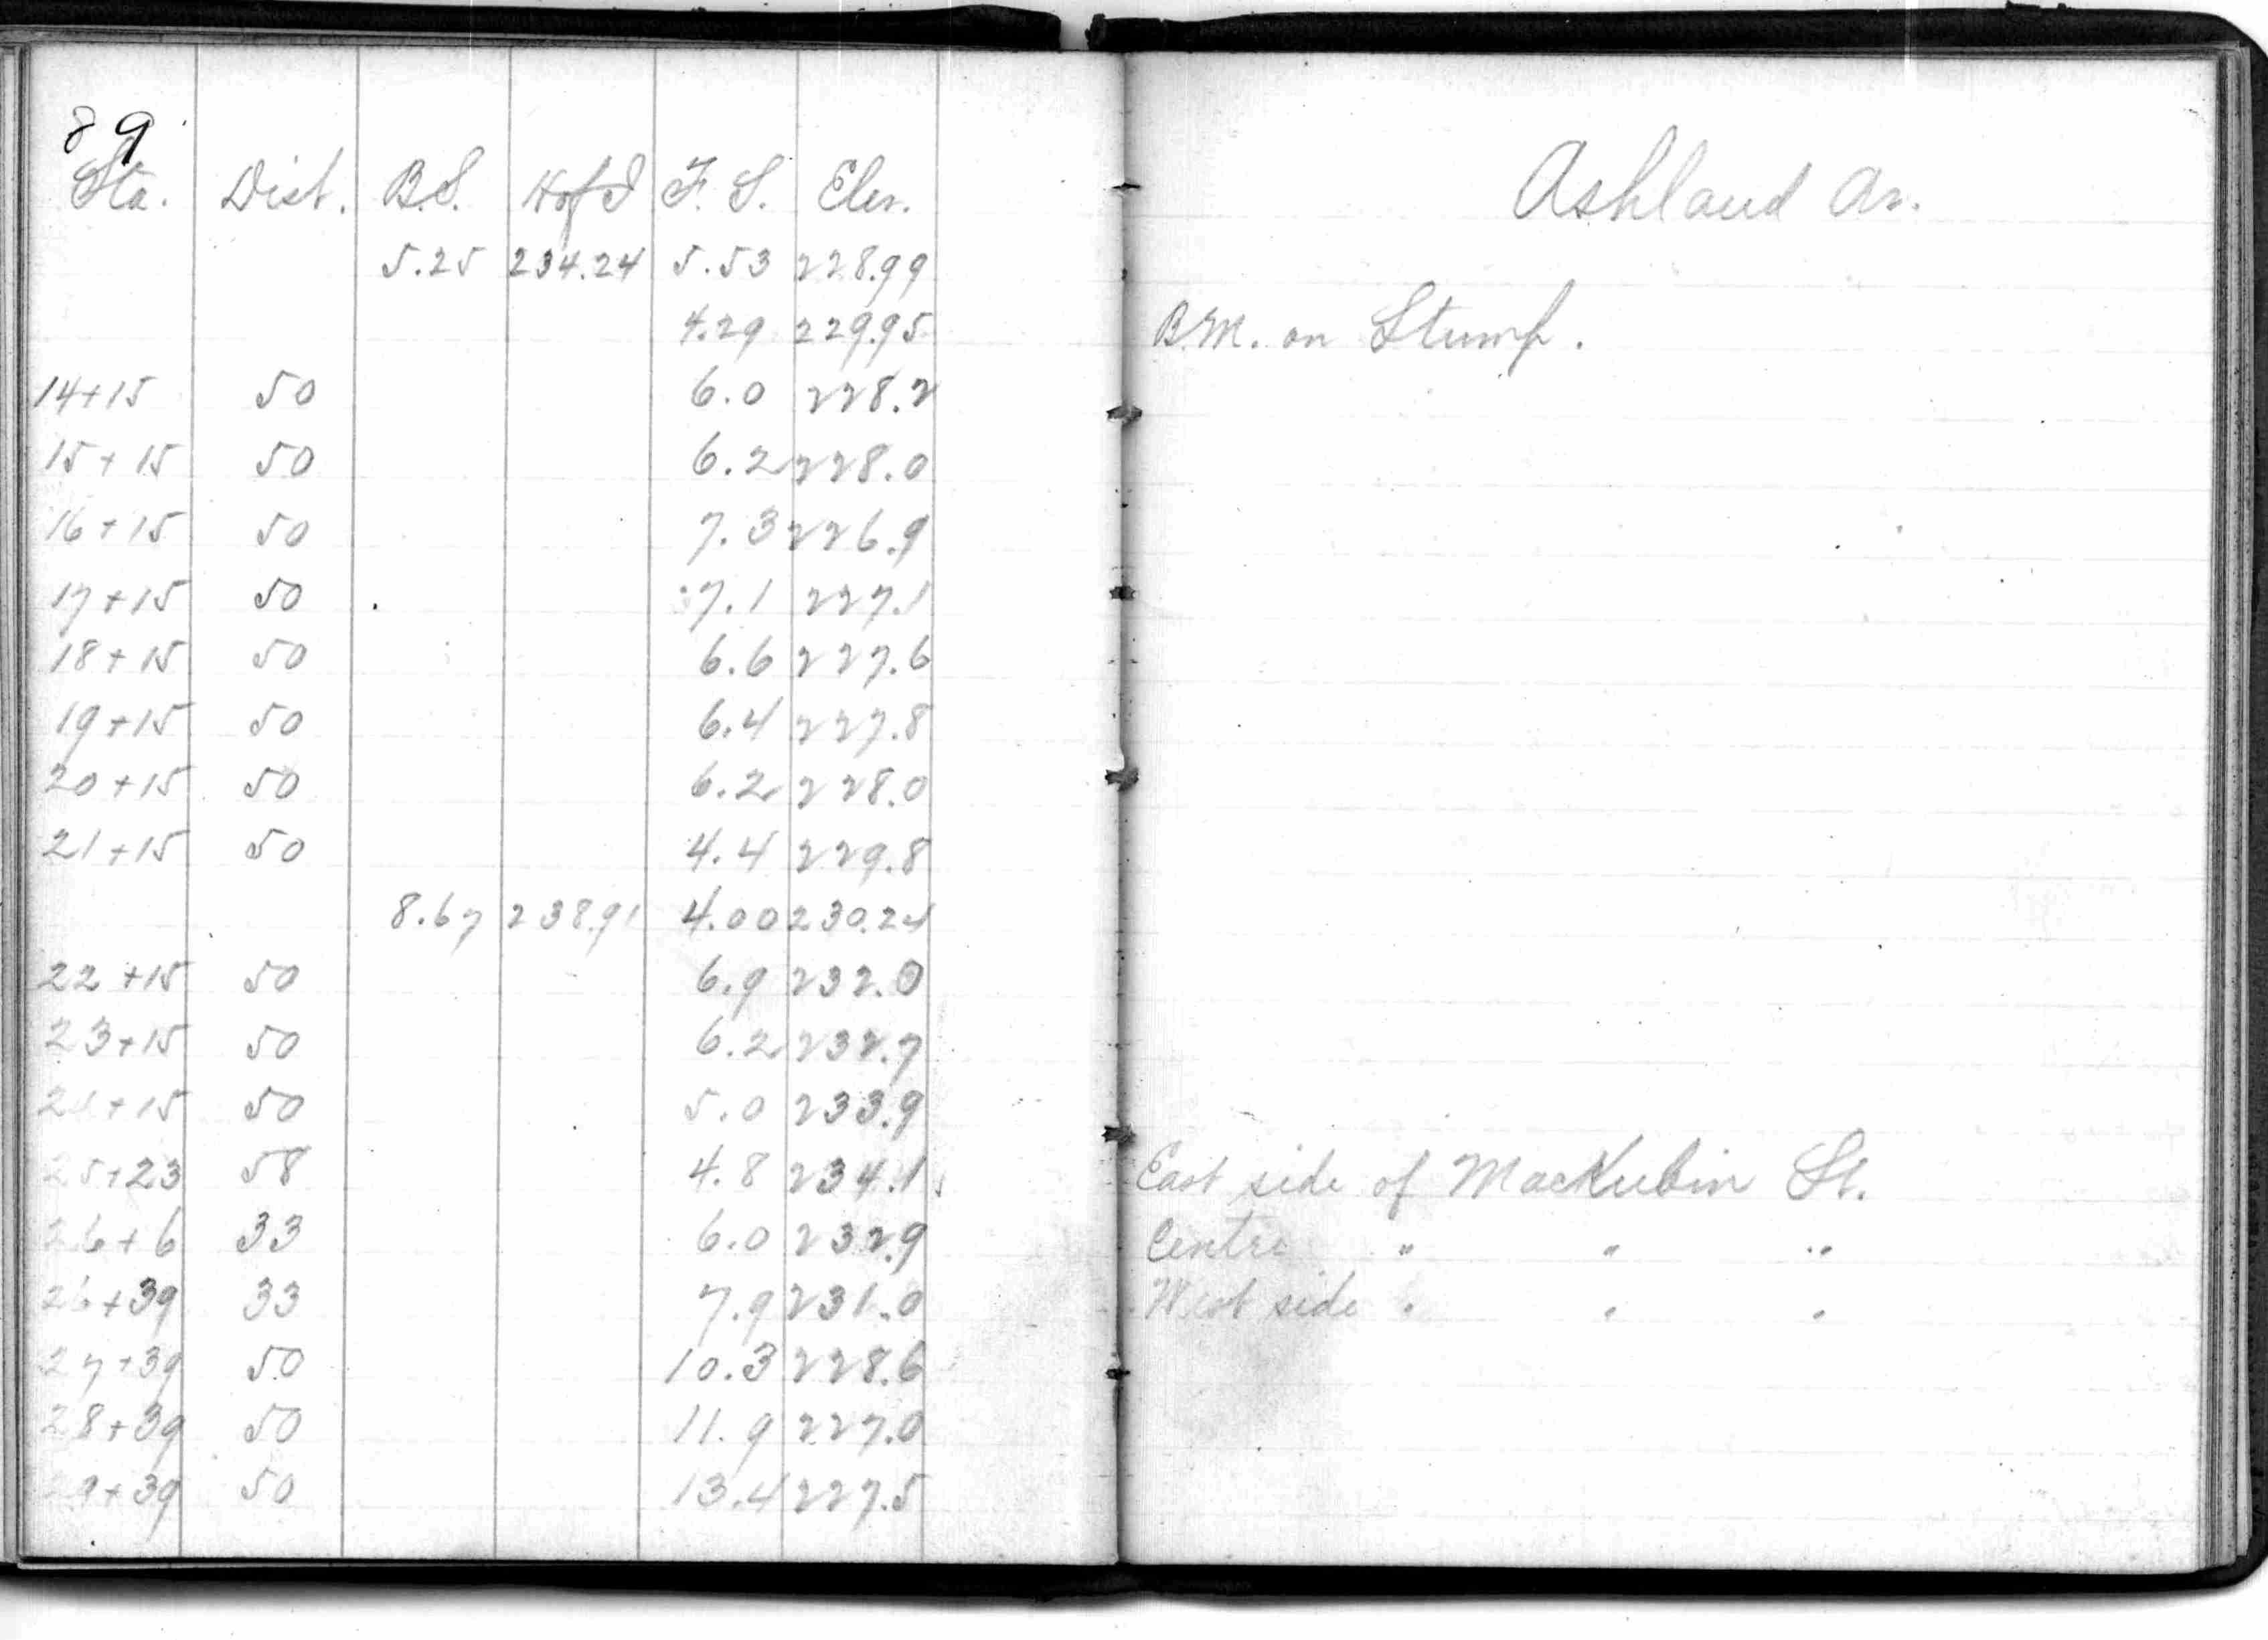 89
Sta. Dist. B.S. H of I F.S. Elev.
5.25 234.24 5.53 228.99
4.29 229.95
14+15 50 6.0 228.2
15+15 50 6.2 228.0
16+15 50 7.3 226.9
17+15 50 7.1 227.1
18+15 50 6.6 227.6
19+15 50 6.4 227.8
20+15 50 6.2 228.0
21+15 50 4.4 229.8
8.67 238.91 4.00 230.24
22+15 50 6.9 232.0
23+15 50 6.2 232.7
24+15 50 5.0 233.9
25+23 58 4.8 234.1
26+6 33 6.0 232.9
26+39 33 7.9 231.0
27+39 50 10.3 228.6
28+39 50 11.9 227.0
29+39 50 13.4 227.5
Ashland Av.
B.M. on Stump.
East side of Mackubin St.
Centre " " "
West side " " "